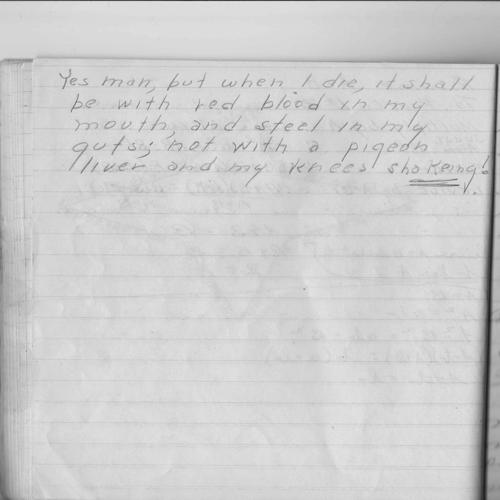 Yes man, but when I die, it shall
be with red blood in my
mouth, and steel in my
guts; not with a pigeon
liver and my knees shakeing!